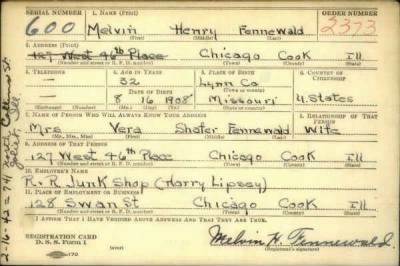 SERIAL NUMBER 1. NAME (Print) ORDER NUMBER
600 Melvin Henry Fennewald 2373
(First) (Middle) (Last)
2. ADDRESS (Print)
127 West 46th Place Chicago Cook Ill
(Number and street or R. F. D. number) (Town) (County) (State)
3. TELEPHONE 4. AGE IN YEARS 5. PLACE OF BIRTH 6. COUNTRY OF CITIZENSHIP
32 Lynn Co
DATE OF BIRTH (Town or county)
8 16 1908 Missouri U. States
(Mo.) (Day) (Yr.) (State or country)
7. NAME OF PERSON WHO WILL ALWAYS KNOW YOUR ADDRESS 8. RELATIONSHIP OF THAT PERSON
Mrs Vera Fennewald Wife
(Mr., Mrs., Miss) (First) (Middle) (Last)
9. ADDRESS OF THAT PERSON
127 West 46th Place Chicago Cook Ill
(Number and street or R. F. D. number) (Town) (County) (State)
10. EMPLOYER'S NAME
R.R Junk Shop (Harry Lipsey)
11. PLACE OF EMPLOYMENT OR BUSINESS
128 Swan St Chicago Cook Ill
(Number and street or R. F. D. number) (Town) (County) (State)
I AFFIRM THAT I HAVE VERIFIED ABOVE ANSWERS AND THAT THEY ARE TRUE.
REGISTRATION CARD
D. S. S. Form 1 (over) Melvin H. Fennewald
(Registrant's signature)
2-16-42 = 741